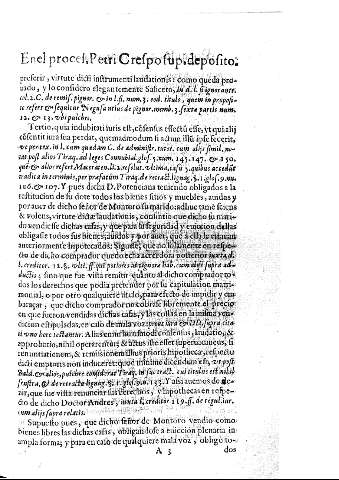 En el proces. Petri Crespo sup. deposito.
preferir, virtute dicti instrumenti laudationis: como queda pro-
uado, y lo considero elegantemente Saliceto, in d. l. si ignorante.
col. 2. C. de remiss. pignor. & in l. si. num. 3. eod. titulo, quem in proposi-
to refert & sequitur Negusantius de pignor. memb. 3. sexta partis num.
12. & 13. ubi pulchre.
Tertio, quia indubitati iuris est, consensus effectū esse, vt qui alij
consentit iura sea perdat, quemadmodum si ad illū ipse
C. de administr. tutor. cum alijs simil.
post alios Tiraq. ad leges Connubial. glos. 5. num. 145. 147. & 150.
col. vltima, casu 5. quibus accedit
in terminis, per præfatum Tiraq. de retract. lignag. §. 1. glos. 9. nu.
106. & 107. Y pues dicha D. Potenciana teniendo obligados a la
restitucion de su dote todos los bienes sitios y muebles, auidos y
por auer de dicho señor de Montoro su marido: adhuc tamē sciens
& volens, virtute dictæ laudationis, consintio que dicho su mari-
do vendiesse dichas casas, y que para la seguridad y euiccion dellas
obligasse todos sus bienes, auidos y por auer, que a ella le estauan
anteriormente hypotecados: Siguese, que no solamente en respe-
cto de dicho comprador quedo ella acreedora posterior,
creditor. 12. §. vlt. ff. qui potiores in pignore hab. cum alijs supra ad-
ductis; sino que fue visto remitir quanto al dicho comprador to-
dos los derechos que podia pretender por su capitulacion matri-
monial, o por otro qualquiere titulo, para efecto de impidir y em-
baraçar, que dicho comprador no cobrasse libremente el precio
en que fueron vendidas dichas casas, y las costas en la misma ven-
dicion estipuladas, en caso de mala voz
huiusmodi consensus, laudatio, &
approbatio, nihil operarētur, & actus iste esset superuacuneus, si
renuntiationem, & remissionem illius prioris hypothecæ, respectu
dicti emptoris non induceret: quæ omnino simul dicendum est,
& alios, pulchre considerat Tiraq. in suo tract. cui titulus est nobil
& de retractu lignag. §. 1. glos. 9. nu. 133. Y assi auemos de de-
zir, que fue visto renunciar sus derechos, y hypothecas en respe-
cto de dicho Doctor Andres, iuxta l. creditor 119. ff. de regul. iur.
cum alijs supra relatis.
Supuesto pues, que dicho señor de Montoro vendio como
bienes libres las dichas casas, obligandose a euiccion plenaria in
ampla forma; y para en caso de qualquiere mala voz, obligò to-
A 3 dos